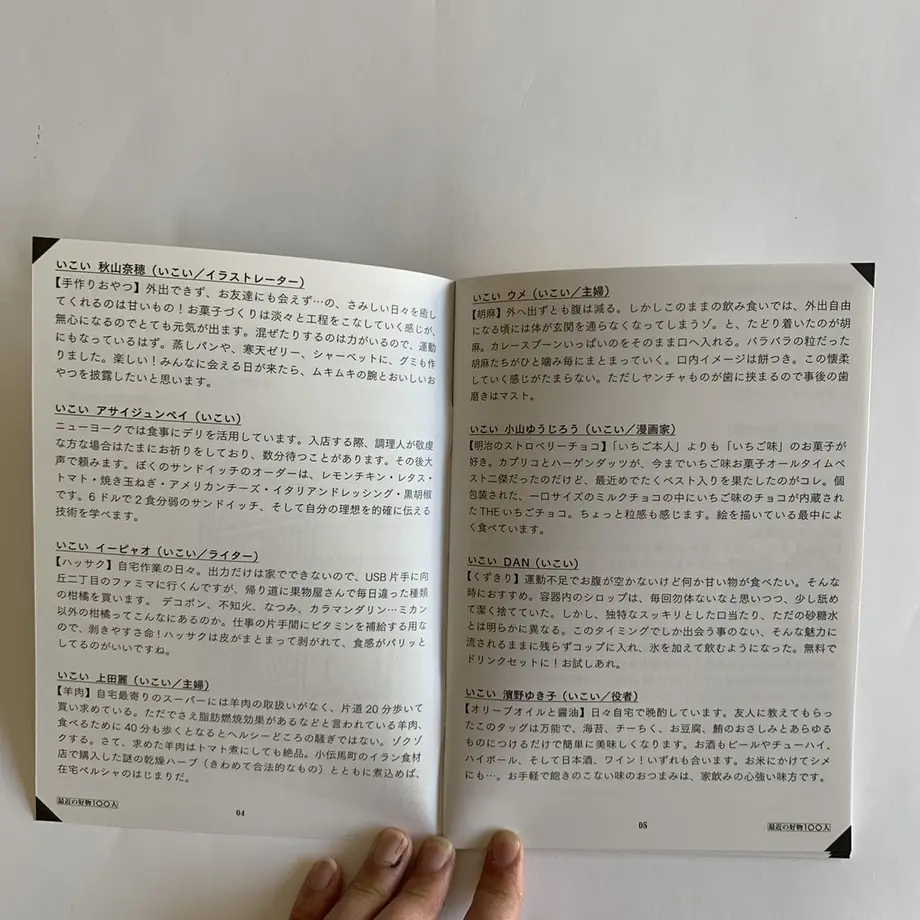 いこい 秋山奈穂（いこい／イラストレーター）
【手作りおやつ】外出できず、お友達にも会えず…の、さみしい日々を癒し
てくれるのは甘いもの！お菓子づくりは淡々と工程をこなしていく感じが、
無心になるのでとても元気が出ます。混ぜたりするのは力がいるので、運動
にもなっているはず。蒸しパンや、寒天ゼリー、シャーベットに、グミも作
りました。楽しい！みんなに会える日が来たら、ムキムキの腕とおいしいお
やつを披露したいと思います。
いこい アサイジュンペイ（いこい）
ニューヨークでは食事にデリを活用しています。入店する際、調理人が敬虔
な方な場合はたまにお祈りをしており、数分待つことがあります。その後大
声で頼みます。ぼくのサンドイッチのオーダーは、レモンチキン・レタス・
トマト・焼き玉ねぎ・アメリカンチーズ・イタリアンドレッシング・黒胡椒
です。6ドルで2食分弱のサンドイッチ、そして自分の理想を的確に伝える
技術を学べます。
いこい イーピャオ（いこい／ライター）
【ハッサク】自宅作業の日々。出力だけは家でできないので、USB片手に向
丘二丁目のファミマに行くんですが、帰り道に果物屋さんで毎日違った種類
の柑橘を買います。 デコポン、不知火、なつみ、カラマンダリン…ミカン
以外の柑橘ってこんなにあるのか。仕事の片手間にビタミンを補給する用な
ので、剥きやすさ命！ハッサクは皮がまとまって剥がれて、食感がパリッと
してるのがいいですね。
いこい 上田麗（いこい／主婦）
【羊肉】自宅最寄りのスーパーには羊肉の取扱いがなく、片道20分歩いて
買い求めている。ただでさえ脂肪燃焼効果があるなどと言われている羊肉、
食べるために40分も歩くとなるとヘルシーどころの騒ぎではない。ゾクゾ
クする。さて、求めた羊肉はトマト煮にしても絶品。小伝馬町のイラン食材
店で購入した謎の乾燥ハーブ（きわめて合法的なもの）とともに煮込めば、
在宅ペルシャのはじまりだ。
最近の好物100人
04
いこい ウメ（いこい／主婦）
【胡麻】外へ出ずとも腹は減る。しかしこのままの飲み食いでは、外出自由
になる頃には体が玄関を通らなくなってしまうゾ。と、たどり着いたのが胡
麻。カレースプーンいっぱいのをそのまま口へ入れる。バラバラの粒だった
胡麻たちがひと噛み毎にまとまっていく。口内イメージは餅つき。この懐柔
していく感じがたまらない。ただしヤンチャものが歯に挟まるので事後の歯
磨きはマスト。
いこい 小山ゆうじろう（いこい／漫画家）
【明治のストロベリーチョコ】「いちご本人」よりも「いちご味」のお菓子が
好き。カプリコとハーゲンダッツが、今までいちご味お菓子オールタイムベ
スト二傑だったのだけど、最近めでたくベスト入りを果たしたのがコレ。個
包装された、一口サイズのミルクチョコの中にいちご味のチョコが内蔵され
たTHEいちごチョコ。ちょっと粒感も感じます。絵を描いている最中によ
く食べています。
いこい DAN（いこい）
【くずきり】運動不足でお腹が空かないけど何か甘い物が食べたい。そんな
時におすすめ。容器内のシロップは、毎回勿体ないなと思いつつ、少し舐め
て潔く捨てていた。しかし、独特なスッキリとした口当たり、ただの砂糖水
とは明らかに異なる。このタイミングでしか出会う事のない、そんな魅力に
流されるままに残らずコップに入れ、氷を加えて飲むようになった。無料で
ドリンクセットに！お試しあれ。
いこい 濱野ゆき子（いこい／役者）
【オリーブオイルと醤油】日々自宅で晩酌しています。友人に教えてもらっ
たこのタッグは万能で、海苔、チーちく、お豆腐、鮪のおさしみとあらゆる
ものにつけるだけで簡単に美味しくなります。お酒もビールやチューハイ、
ハイボール、そして日本酒、ワイン！いずれも合います。お米にかけてシメ
にも…。お手軽で飽きのこない味のおつまみは、家飲みの心強い味方です。
05
最近の好物100人